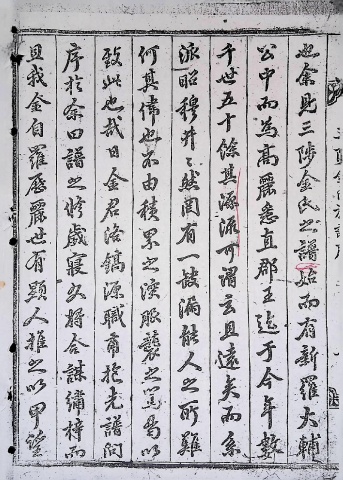 也余見三陟金氏之譜始而有新羅大輔
公中而為高麗悉直郡王迄于今年數
千世五十餘其源流可謂云且遠矣而系
派昭穆井々然罔有一缺漏能人之所難
何其偉也不由積累之深眼襲之篤曷以
致此也哉日金君洛鎬源職甫抱先譜問
序於余曰譜之修歲寢久將合謀繡梓而
且我金自羅歷麗世有顯人推之以甲望